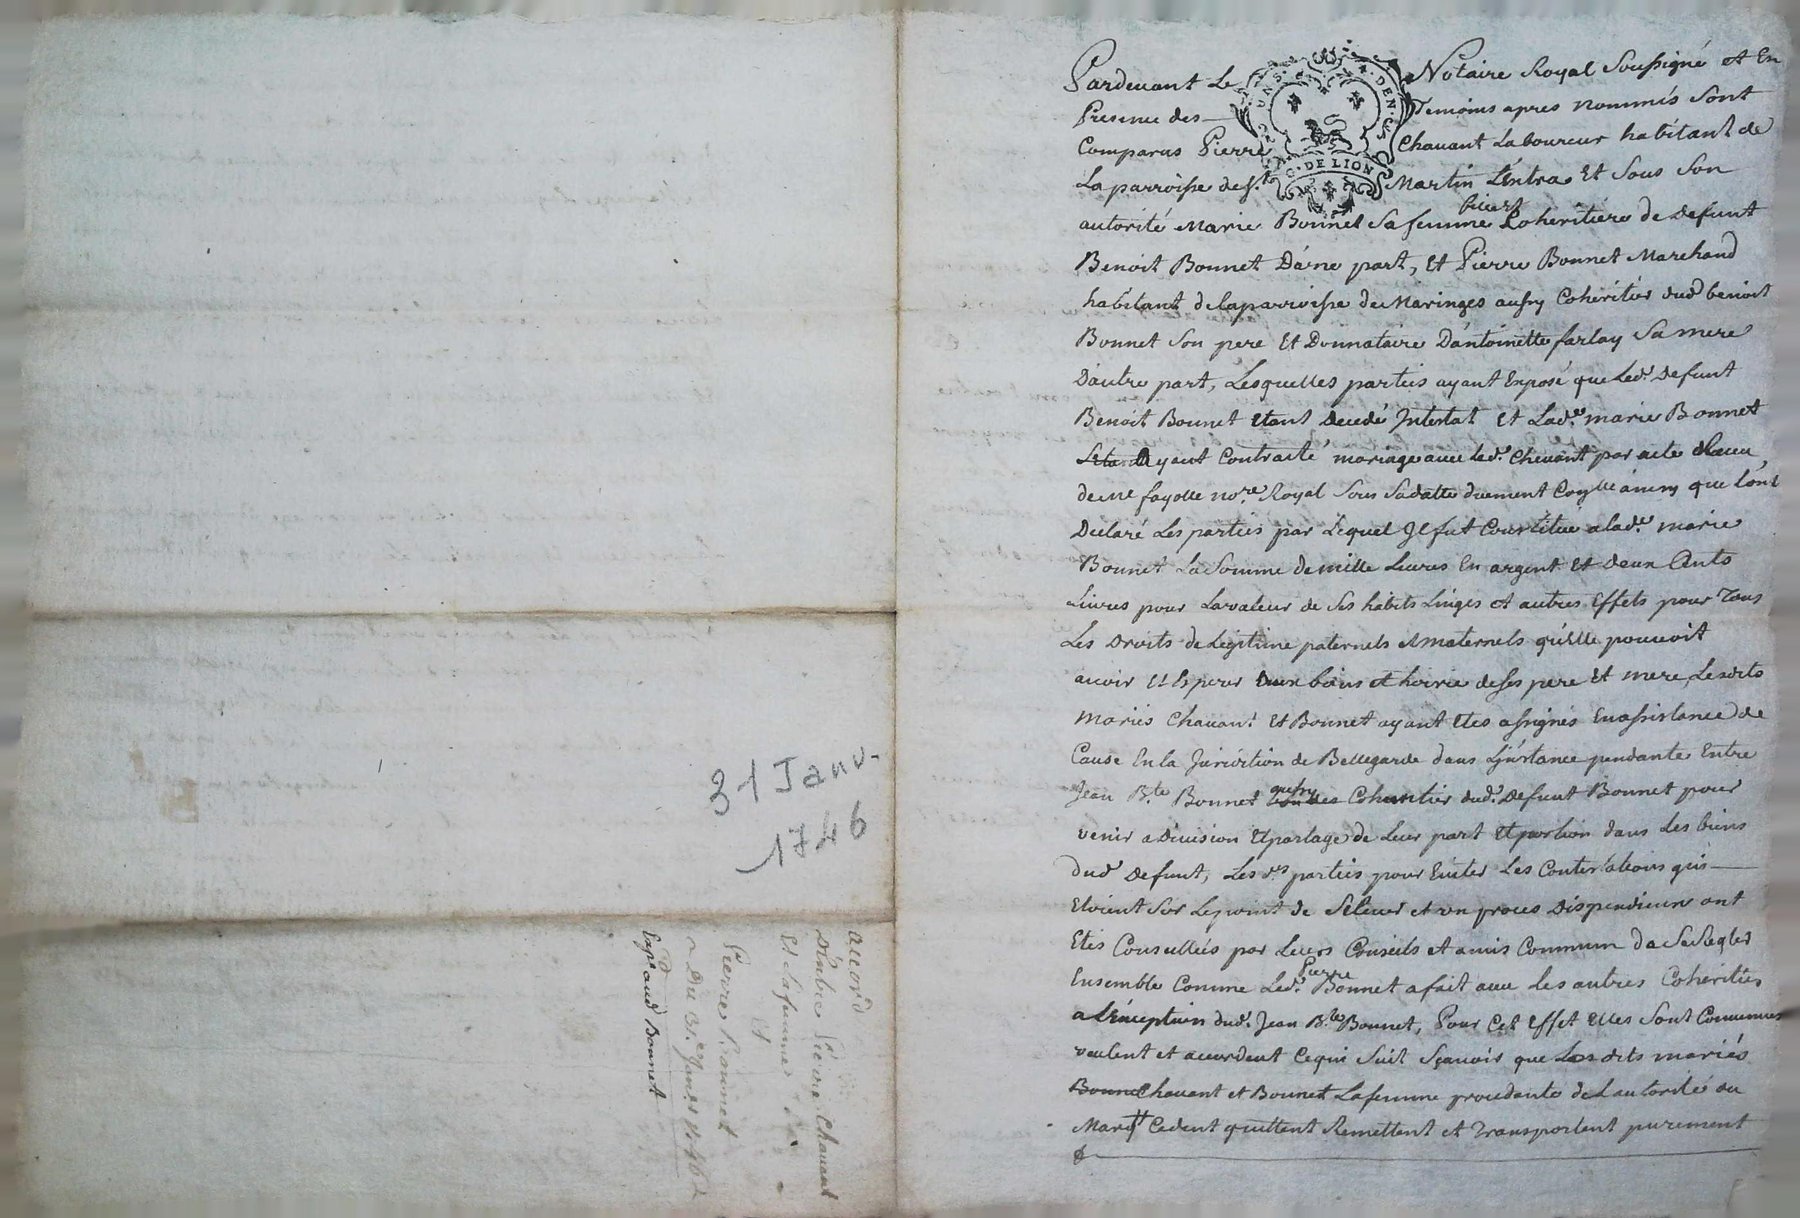 31 Janv.
1746
accord
D'entre Pierre Chavant
Et Lafemme
Et
Pierre Bonnet
Du 31.e Janv.er
Exp.é aud Bonnet
Pardevant Le Notaire Royal Soussigné et En
Presence des Temoins apres nommés Sont
Comparus Pierre Chavant Laboureur habitant de
La parroisse de St Martin Lentra Et Sous Son
autorité Marie Bonnet Sa femme Coheritiere de Defunt
Benoit Bonnet D'une part, Et Pierre Bonnet Marchand
habitant de laparroisse de Maringes aussy Coheritier dud benoit
Bonnet Son pere Et Donnataire D'antoinette farlay Sa mere
D'autre part, Lesquelles parties ayant Exposé que Led. Defunt
Benoit Bonnet Etant Decedé Intestat Et Lad.e marie Bonnet
ayant Contracté mariage avec Led. Chavant par acte Recu
de Me fayolle no.re Royal Sous Sadatte duement ainsy que L'ont
Declaré Les parties par Lequel Il fut Constitué a lad.e marie
Bonnet La Somme de mille Livres En argent Et Deux Cents
Livres pour Lavaleur de Ses habits Linges et autres Effets pour Tous
Les Droits de Legitime paternels et maternels qu'Elle pouvoit
avoir Et Esperer biens et hoirie de Ses pere Et mere, Lesdits
mariés Chavant Et Bonnet ayant Etes assignés En assistance de
Cause En la Jurisdition de Bellegarde dans L'instance pendante Entre
Jean B.te Bonnet aussy Coheritier dud. Defunt Bonnet pour
venir a Division Et partage de Leur part Et portion dans Les biens
dud Defunt, Les d.es parties pour Eviter Les Contestations quis
Etoient Sur Le point de Selever et un proces Dispendieux ont
Etés Conseillées par Leurs Conseils et amis Commun de Se Regler
Ensemble Comme Led. Pierre Bonnet a fait avec Les autres Coheritiers
a L'exception dud. Jean B.te Bonnet, Pour Cet Effet Elles Sont Convenues
veulent et accordent Cequi Suit Sçavoir que Lesdits mariés
Chavant et Bonnet Lafemme procedante de L'autorité du
Mary Cedent quittent Remettent et Transportent purement